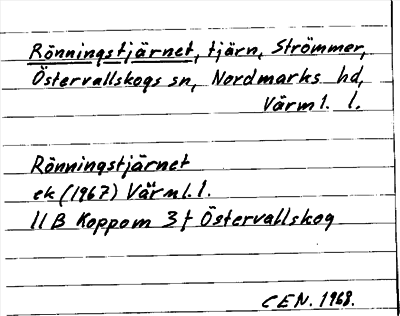 Rönningstjärnet, tjärn, Strömmer,
Östervallskogs sn, Nordmarks hd,
Värml. l.
Rönningstjärnet
ek (1967) Värml. l.
11 B Koppom 3 f Östervallskog
CEN. 1968.